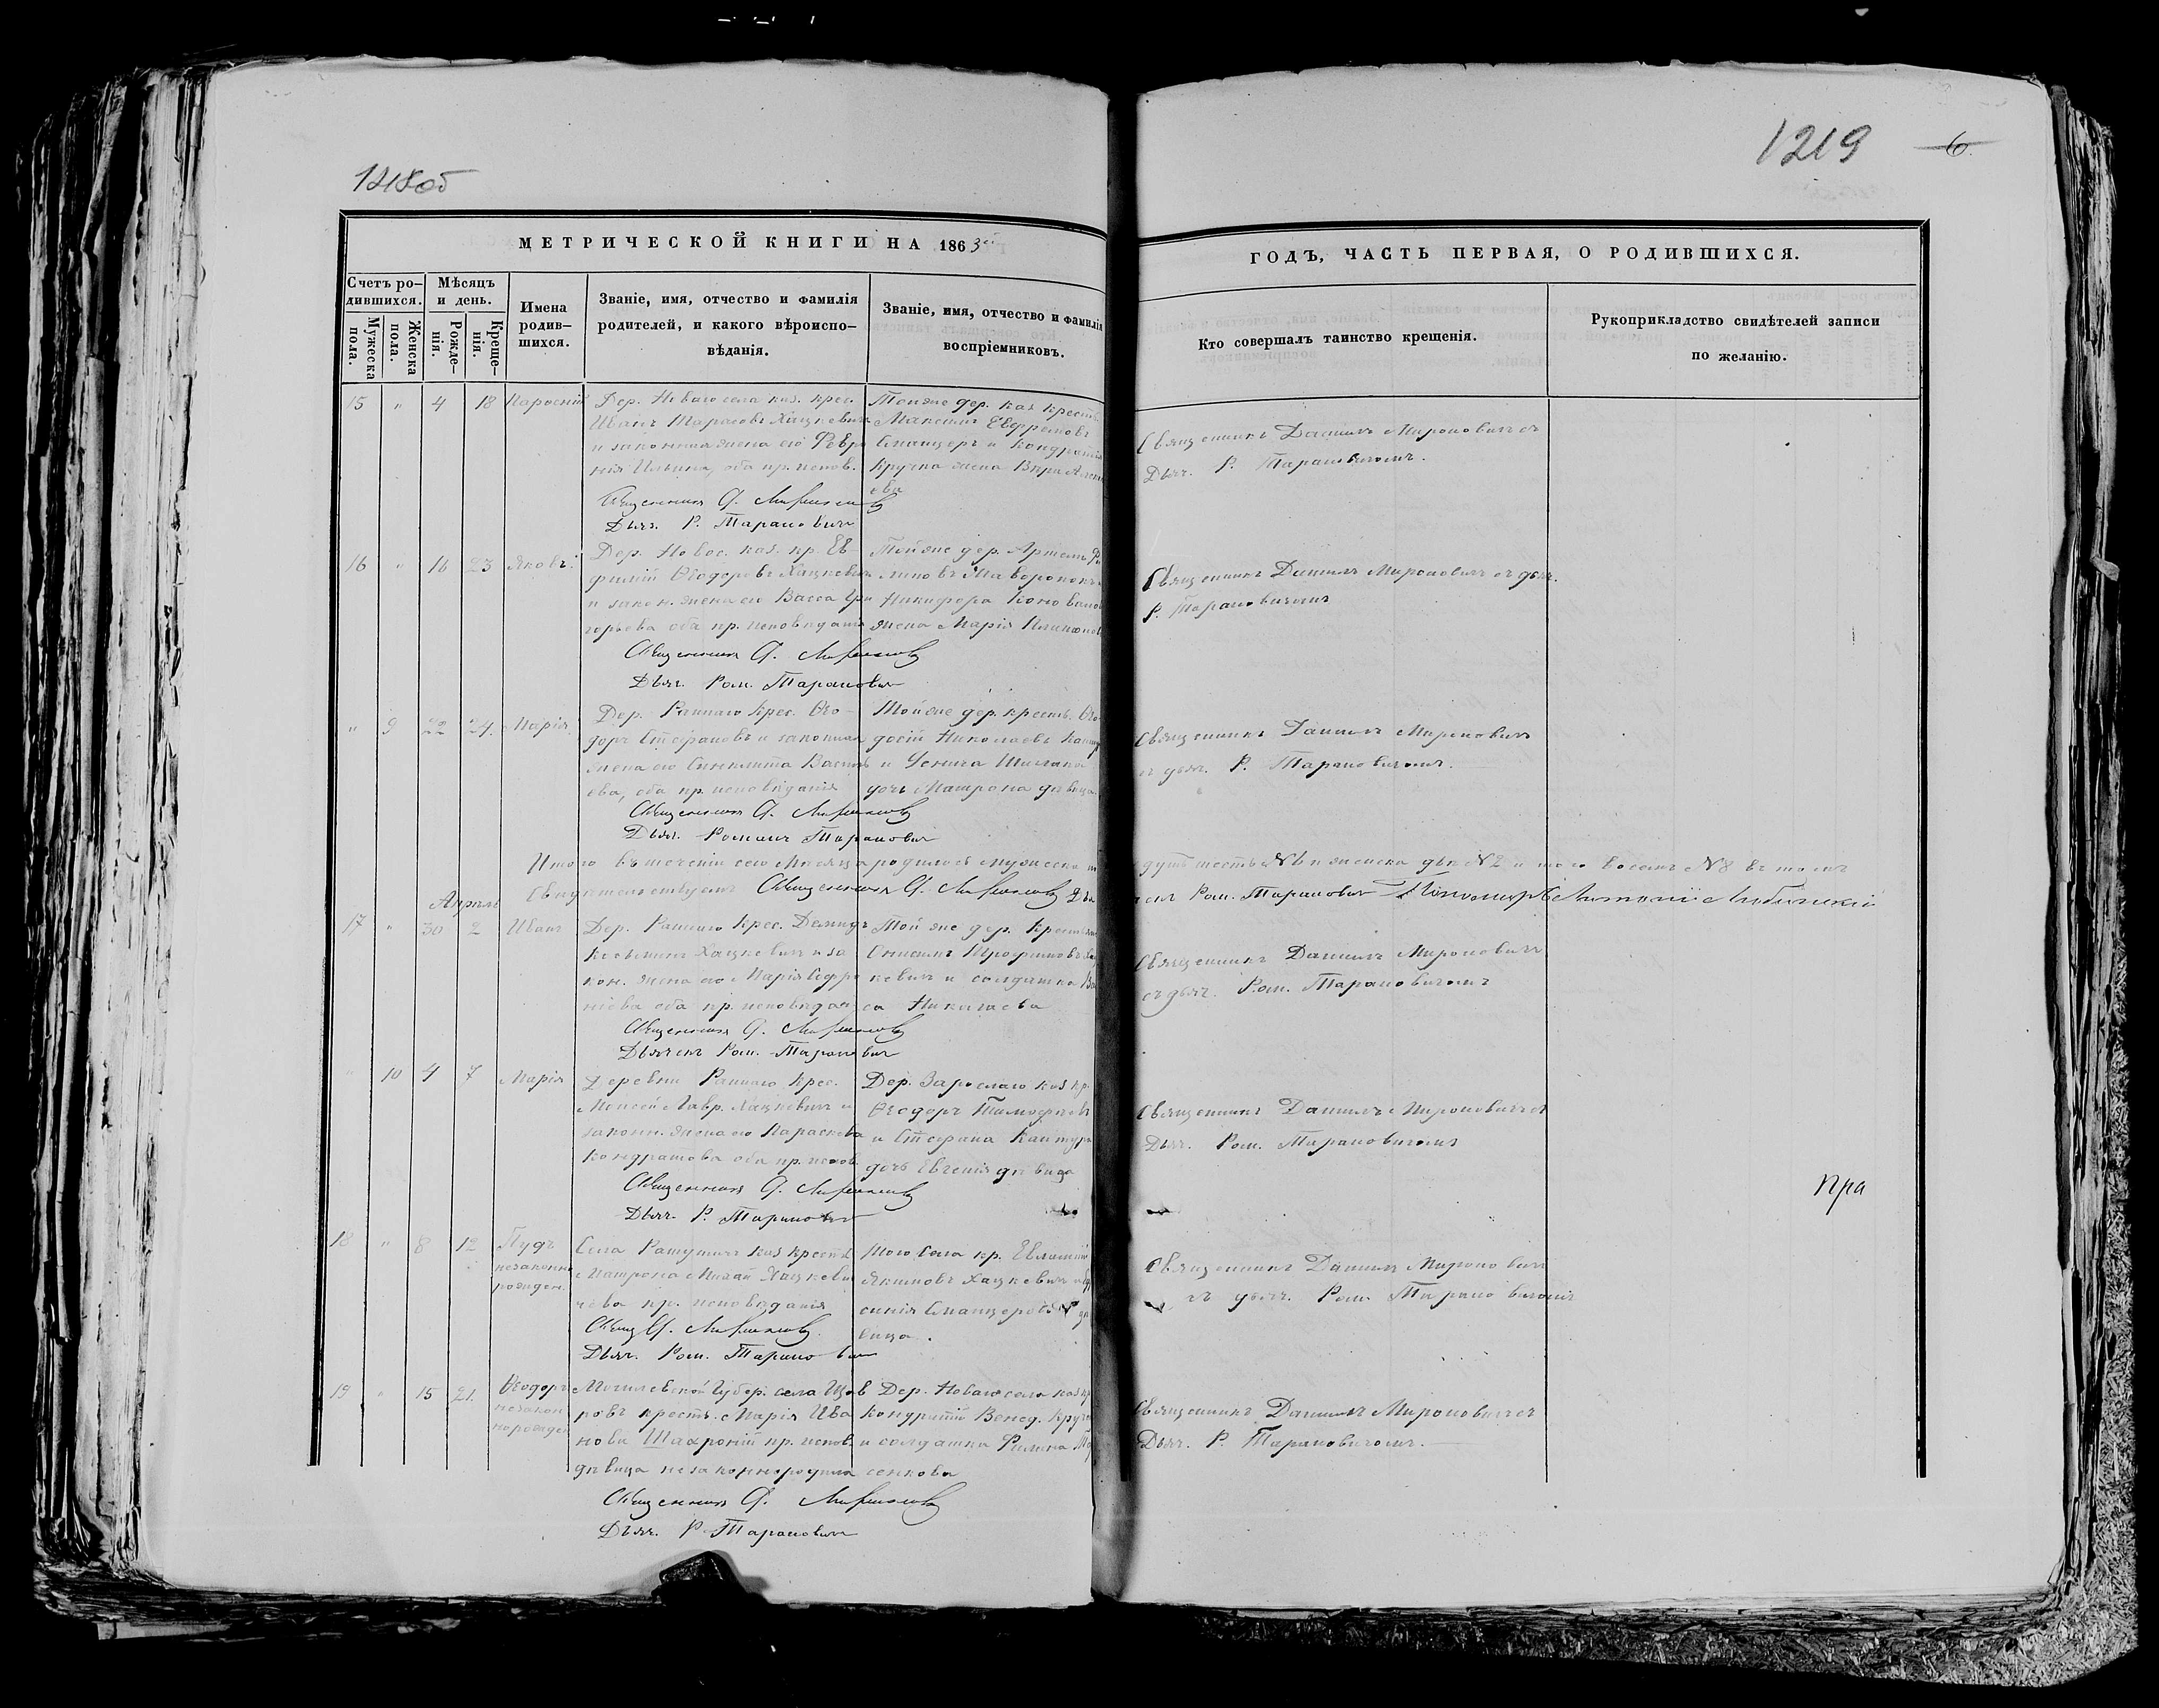 1218об
1219 6.
МЕТРИЧЕСКОЙ КНИГИ НА 1863й
ГОДЪ, ЧАСТЬ ПЕРВАЯ, О РОДИВШИХСЯ.
Счетъ ро-
дившихся.
Мужеска
пола.
Женска
пола.
Мѣсяцъ
и день.
Рожде-
нія.
Креще-
нія.
Имена
родив-
шихся.
Званіе, имя, отчество и фамилія
родителей, и какого вѣроиспо-
вѣданія.
Званіе, имя, отчество и фамилія
воспріемниковъ.
Кто совершалъ таинство крещенія.
Рукоприкладство свидѣтелей записи
по желанію.
15 " 4 18
Дер. Новаго села каз. крес.
Иванъ Тарасовъ Хацкевичъ
и законная жена его Февро
нія Ильина, оба пр. испов.
Священникъ Д. Мироновичъ
Дьяч. Р. Тарановичъ
Тойже дер. каз. крест.
Максимъ Ефремовъ
и Кондратія
Кручка жена Вѣра
ева
Священникъ Даніилъ Мироновичъ съ
Дьяч. Р. Тарановичомъ.
16 " 16 23 Яковъ
Дер. Новос. каз. кр. Ев-
фимій Ѳеодоровъ Хацкевичъ
и закон. жена его Васса Гри
горьева оба пр. исповѣданія
Священникъ Д. Мироновичъ
Дьяч. Ром. Тарановичъ
Тойже дер. Артемъ
Никифора
жена Марія
Священникъ Даніилъ Мироновичъ съ дьяч.
Р. Тарановичомъ
" 9 22 24. Марія
Дер. Раннаго Крес. Ѳео-
доръ Стефановъ и законная
жена его Синклита Василь
ева, оба пр. исповѣданія
Священникъ Д. Мироновичъ
Дьяч. Романъ Тарановичъ
Тойже дер. крест. Ѳео
досій Николаевъ
и
дочь Матрона дѣвица.
Священникъ Даніилъ Мироновичъ
съ дьяч. Р. Тарановичомъ.
Итого въ теченіи сего Мѣсяца родилось мужеска
шесть №6 и женска двѣ №2 и того восемь №8 въ томъ
Свидѣтельствуемъ Священникъ Д. Мироновичъ Дья
чекъ Ром. Тарановичъ Пономарь Антоній
Апрѣль
17 " 30 2 Иванъ
Дер. Раннаго Крес. Демидъ
Косьминъ Хацкевичъ и за
кон. жена его Марія Софро
ніева оба пр. исповѣдан.
Священникъ Д. Мироновичъ
Дьячекъ Ром. Тарановичъ
Той же дер. Крестьян
Онисимъ Трофимовъ Хац
кевичъ и солдатка Ва
са Николаева
Священникъ Даніилъ Мироновичъ
съ дьяч. Ром. Тарановичомъ
" 10 4 7 Марія
Деревни Раннаго Крес.
Моисей Лавр. Хацкевичъ и
законн. жена его Параскева
Кондратова оба пр. испов.
Священникъ Д. Мироновичъ
Дьяч. Р. Тарановичъ
Дер. Зарослаго каз кр.
Ѳеодоръ Тимофѣевъ
и Стефана
дочь Евгенія дѣвица
Священникъ Даніилъ Мироновичъ съ
Дьяч. Ром. Тарановичомъ
Пра
18 " 8 12 Пудъ
незаконно
рожден.
Села Ратутичъ каз крест.
Матрона Хацкеви
чева пр. исповѣданія
Свящ Д. Мироновичъ
Дьяч. Ром. Тарановичъ
Того села кр. Евлампій
Якимовъ Хацкевичъ и
синія дѣ
вица.
Священникъ Даніилъ Мироновичъ
съ дьяч. Ром. Тарановичомъ
19 " 15 21. Ѳеодоръ
незакон
норожден
Могилевской Губер. села
ровъ крест. Марія Ива
нова пр. испов.
дѣвица незаконнородила
Священникъ Д. Мироновичъ
Дьяч. Р. Тарановичъ
Дер. Новаго села каз кр
Кондратій Венед. Кручк
и солдатка
сенкова
Священникъ Даніилъ Мироновичъ съ
Дьяч. Р. Тарановичомъ.